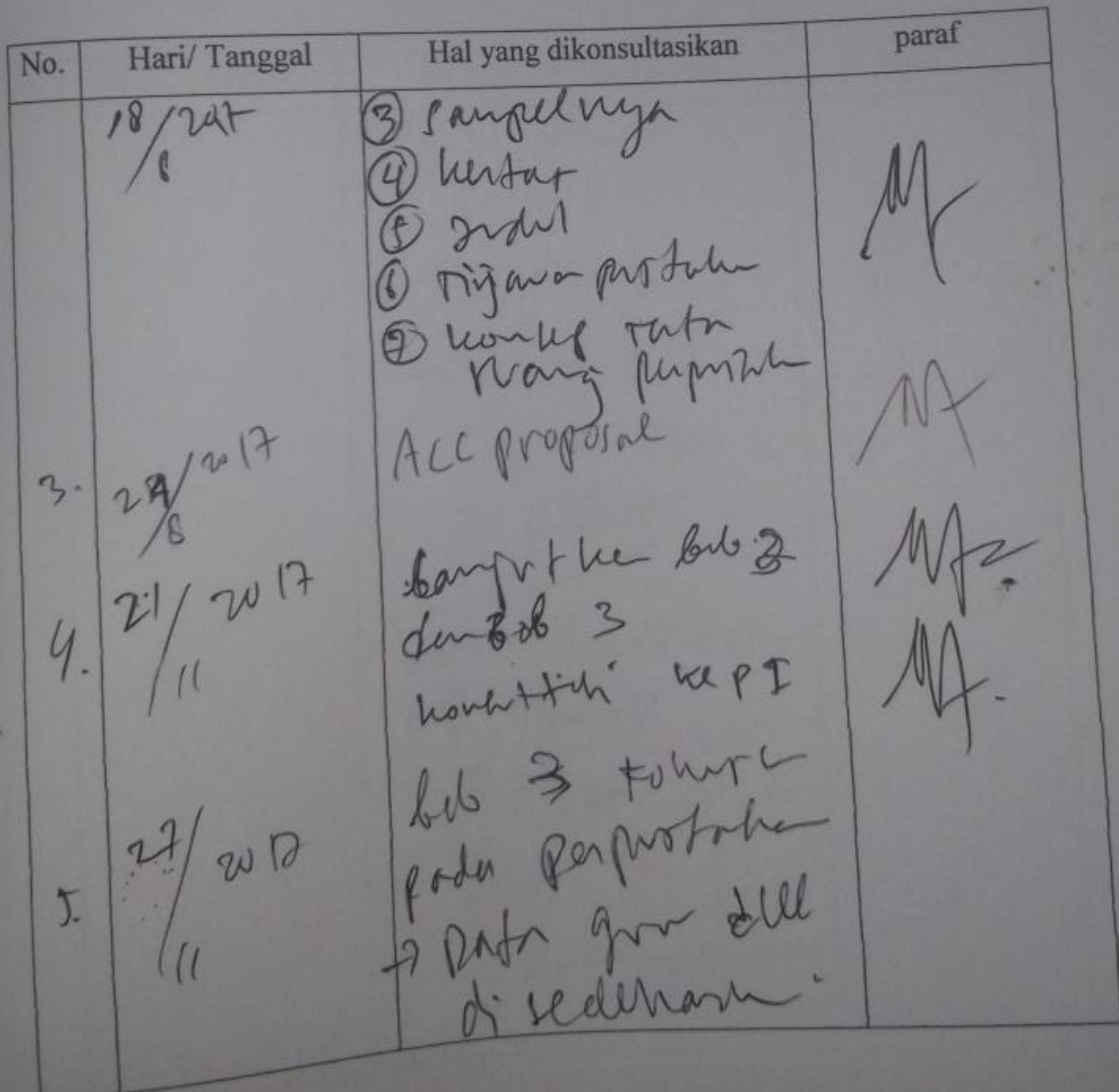 No. Hari/ Tanggal Hal yang dikonsultasikan paraf
18/8 2017 ③ sampelnya
④ kertas
⑤ judul
⑥ Tinjauan pustaka
⑦ konsep tata
ruang perpustakaan
3. 24/8 2017 ACC proposal
4. 21/11 2017 Lanjut ke bab 2
dan Bab 3
ke P I
5. 27/11 2017 bab 3
pada Perpustakaan
→ Data guru dll
di sederhanakan.